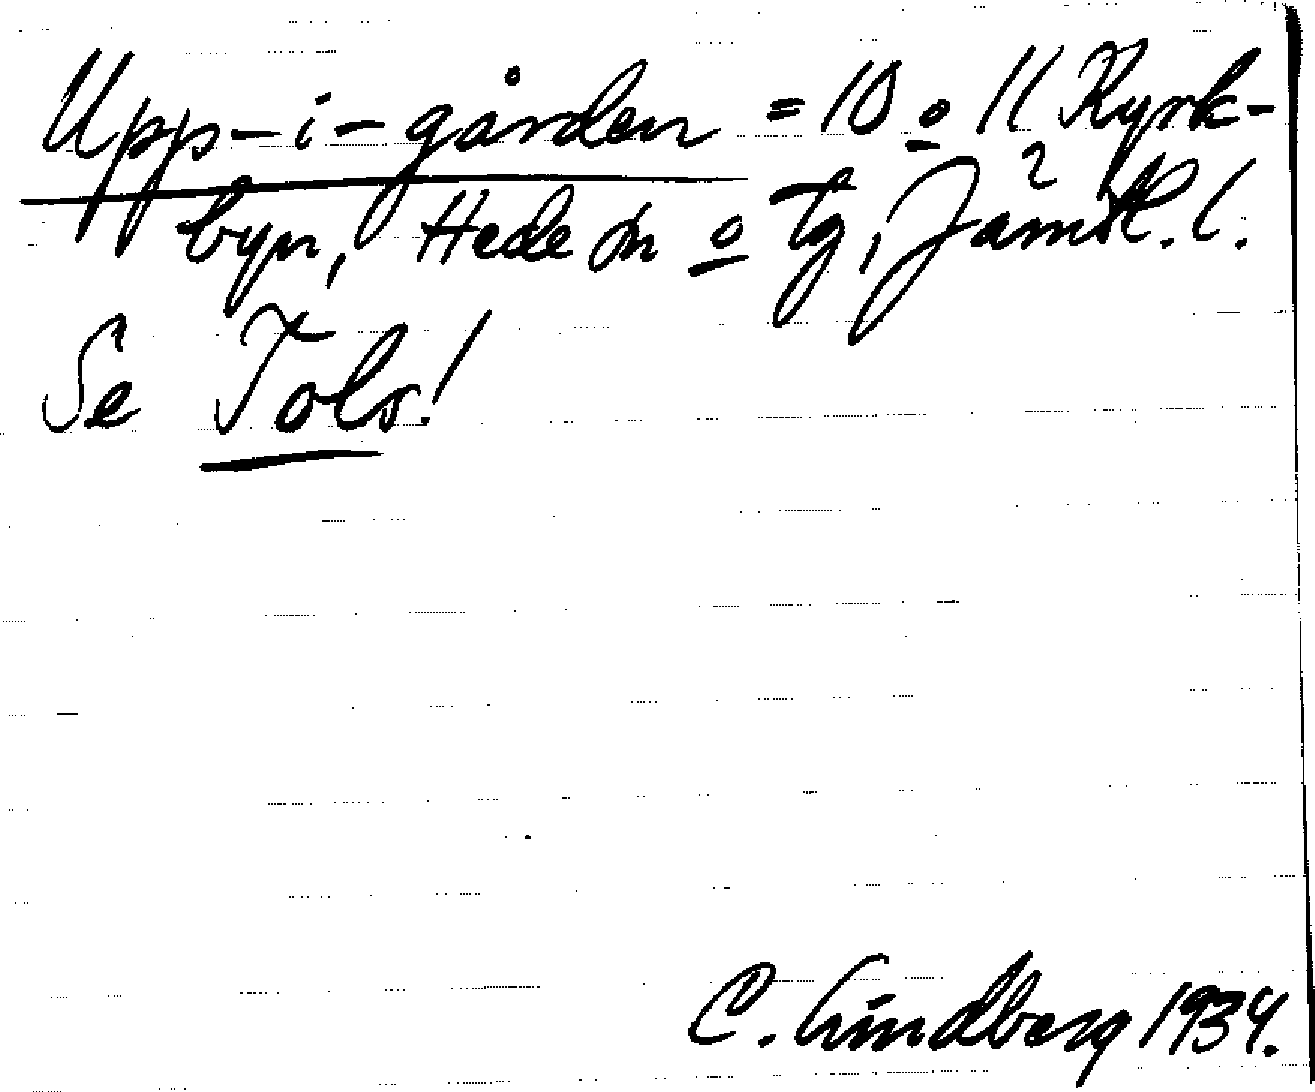 Upp-i-gården = 10 o 11 Kyrk-
byn, Hede sn o tg, Jämtl. l.
Se Tols!
C. Lindberg 1934.